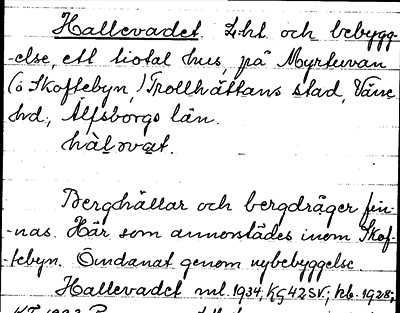 Hallevadet. L:ht och bebygg-
-else, ett tiotal hus, på Myrtuvan
(ö Skoftebyn,) Trollhättans stad, Väne
hd., Älfsborgs län.
hàl̥ovat.
Berghällar och bergdrager fin-
-nas. Här som annorstädes inom Skof-
-tebyn. Omdanat genom nybebyggelse.
Hallevadet ml. 1934, Kg 42 SV.; hb. 1928;